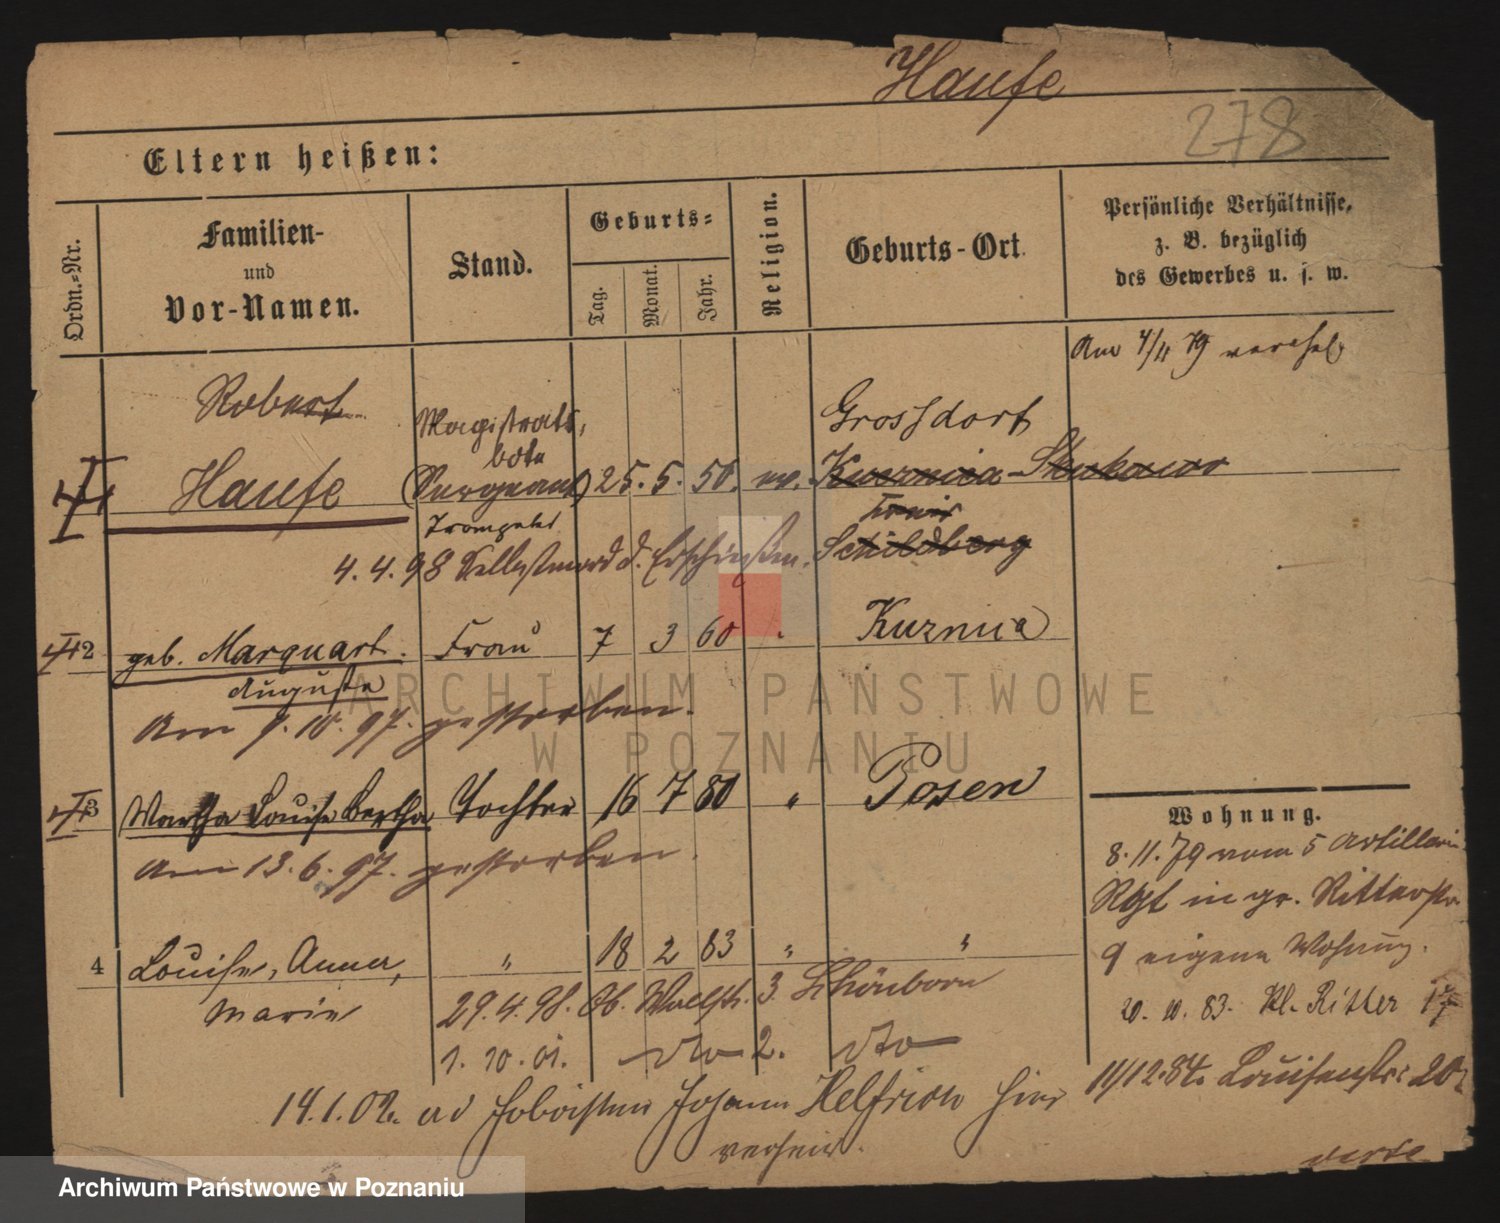 Haufe
278
Eltern heißen:
Ordn.-Nr.
Familien-
und
Vor-Namen.
Stand.
Geburts-
Tag.
Monat.
Jahr.
Religion.
Geburts-Ort.
Persönliche Verhältnisse,
z. B. bezüglich
des Gewerbes u. s. w.
Am 4/11 79 verehel.
Robert
Haufe
Magistrats,
bote
(Sergeant)
Trompeter
25. 5. 50. ev.
Grossdorf
Kuznica
Schildberg
4. 4. 98 Selbstmord d. Erschießen.
2 geb. Marquart. Frau 7 3 60 Kuznica
Auguste
Am 9. 10. 97. gestorben.
3 Martha Louise Bertha Tochter 16 7 80 " Posen
Am 13. 6. 97. gestorben.
4 Louise, Anna, " 18 2 83 " "
Marie
29. 4. 98. Ob. Wallstr. 3. Schönborn
1. 10. 01. dto 2. dto
14. 1. 02. ad Hoboisten Johann Helfrich hier
verheir.
Wohnung.
8. 11. 79 vom 5 Artillerie
Rgt in gr. Ritterstr
9 eigene Wohnung.
20. 10. 83. Kl. Ritter 17
11/12. 84. Louisenstr. 20
verte
ARCHIWUM PAŃSTWOWE
W POZNANIU
Archiwum Państwowe w Poznaniu